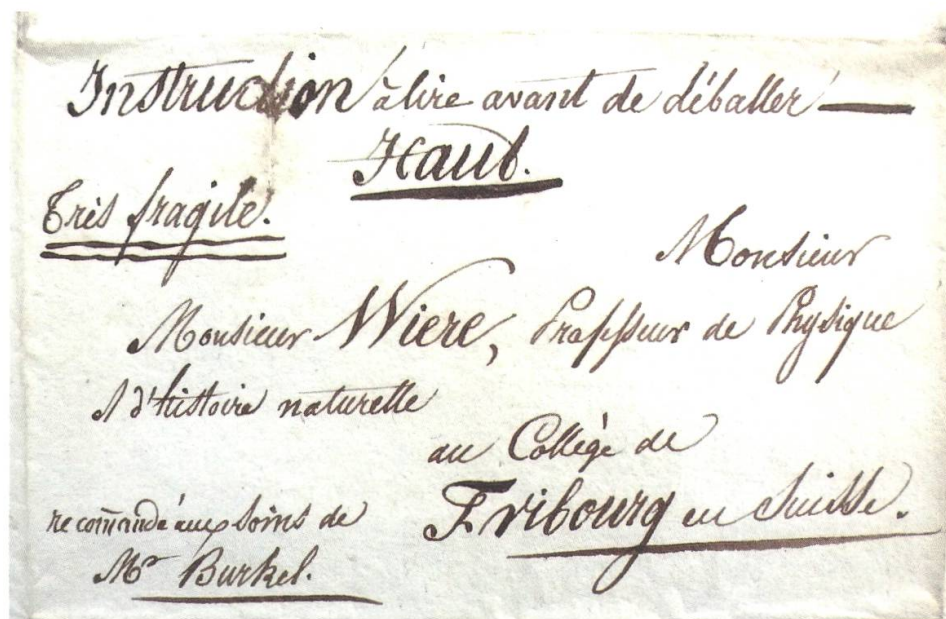 Instruction à lire avant de déballer —
Haut.
Très fragile.
Monsieur
Monsieur Wiere, Professeur de Physique
& d'histoire naturelle
au Collège de
Fribourg en Suisse.
recommandé aux soins de
Mr Burkel.